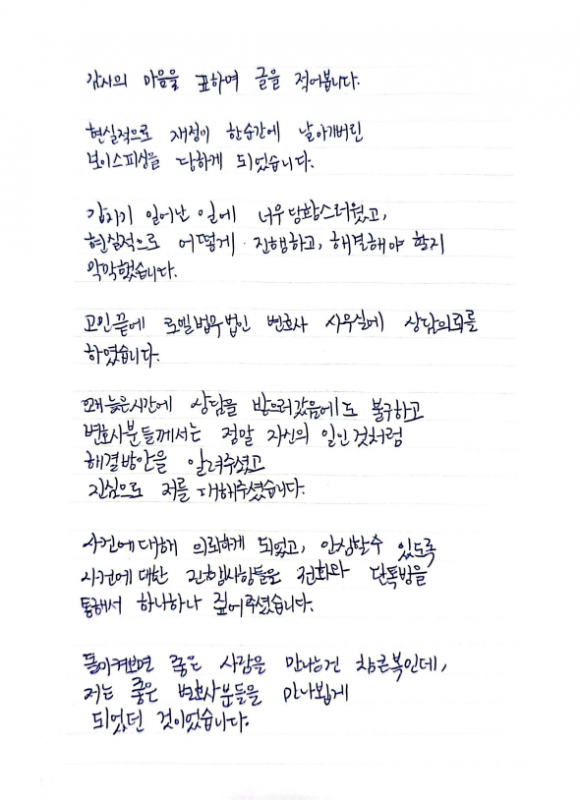 감사의 마음을 표하여 글을 적어봅니다.
현실적으로 재정이 한순간에 날아가버린
보이스피싱을 당하게 되었습니다.
갑자기 일어난 일에 너무 당황스러웠고,
현실적으로 어떻게 진행하고, 해결해야 할지
막막했습니다.
고민끝에 로엘법무법인 변호사 사무실에 상담의뢰를
하였습니다.
꽤 늦은시간에 상담을 받으러갔음에도 불구하고
변호사분들께서는 정말 자신의 일인것처럼
해결방안을 알려주셨고
진심으로 저를 대해주셨습니다.
사건에 대해 의뢰하게 되었고, 안심할수 있도록
사건에 대한 진행사항들을 전화와 단톡방을
통해서 하나하나 짚어주셨습니다.
돌이켜보면 좋은 사람을 만나는건 참 큰복인데,
저는 좋은 변호사분들을 만나뵙게
되었던 것이었습니다.